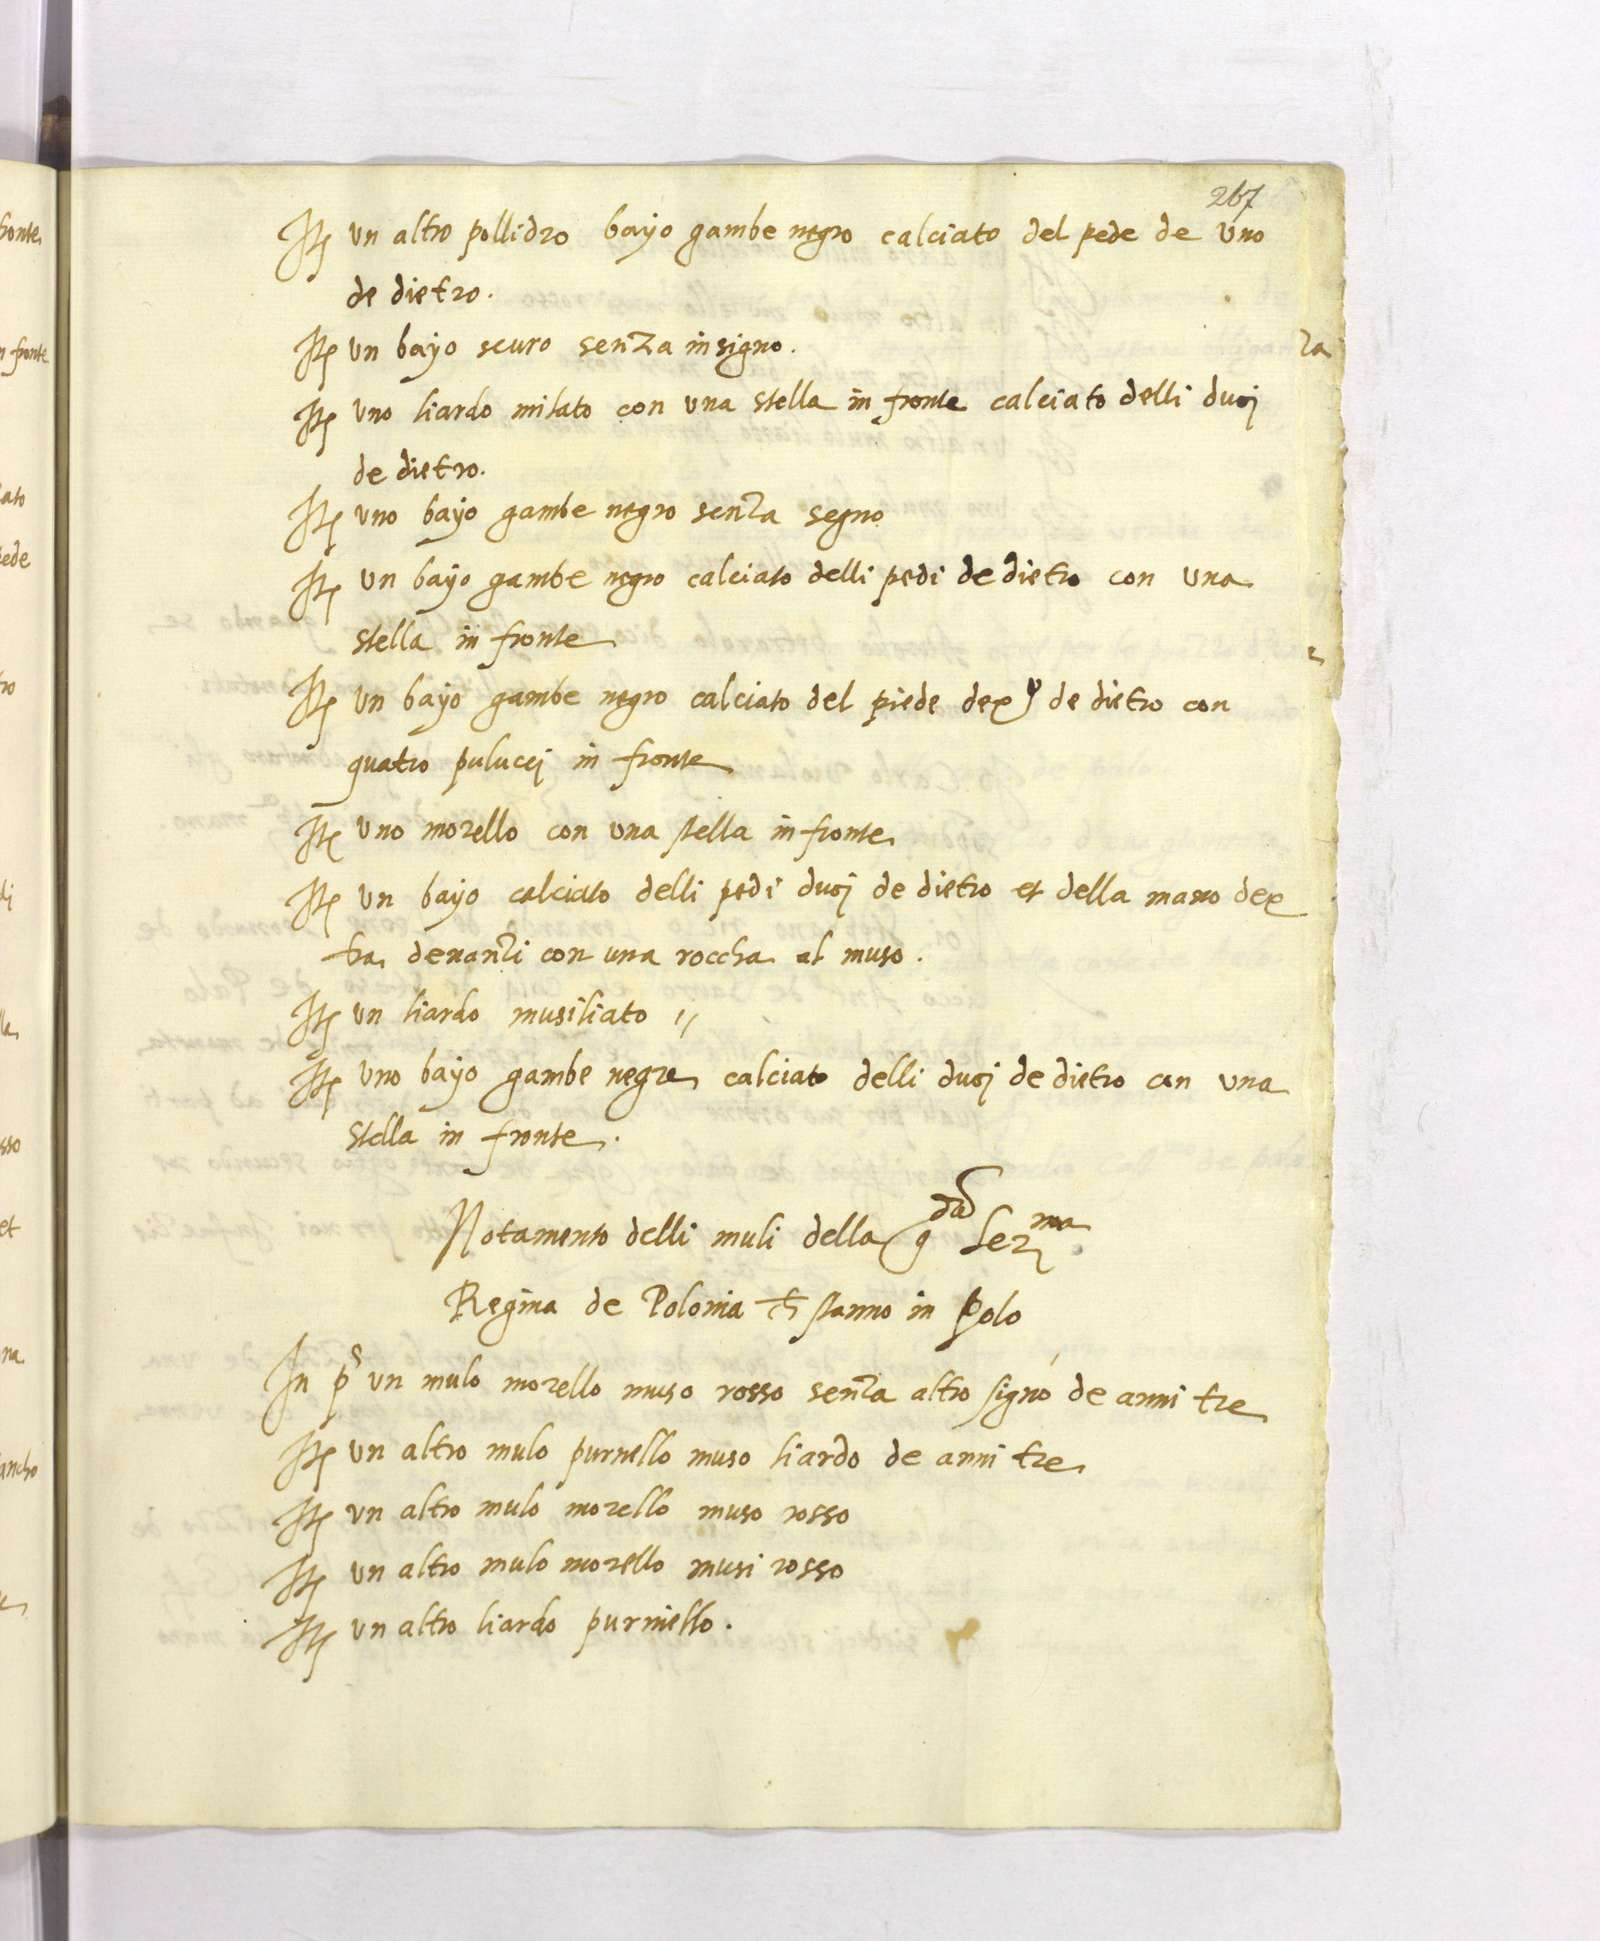 267
Itȩ un altro pollidro bayo gambe negro calciato del pede de uno
de dietro.
Itȩ un bayo scuro senza insigno.
Itȩ uno liardo milato con una stella in fronte calciato delli duoj
de dietro.
Itȩ uno bayo gambe negro senza segno
Itȩ un bayo gambe negro calciato delli pedi de dietro con una
stella in fronte
Itȩ un bayo gambe negro calciato del piede dex de dietro con
quatro pulucej in fronte
Itȩ uno morello con una stella in fronte
Itȩ un bayo calciato delli pedi duoj de dietro et della mano dex
tra denanzi con una roccha al muso.
Itȩ un liardo musiliato //
Itȩ uno bayo gambe negre calciato delli duoj de dietro con una
stella in fronte.
Notamento delli muli della q da Serma
Regina de Polonia ch stanno in Polo
In ps un mulo morello muso rosso senza altro signo de anni tre
Itȩ un altro mulo purnello muso liardo de anni tre
Itȩ un altro mulo morello muso rosso
Itȩ un altro mulo morello musi rosso
Itȩ un altro liardo purniello.